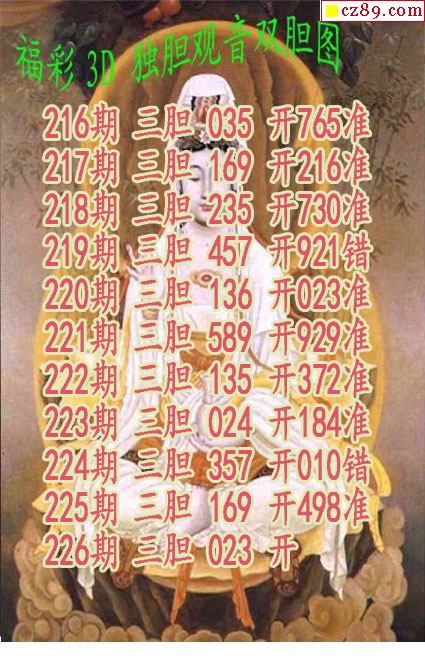 cz89.com
福彩 3D 独胆观音双胆图
216期 三胆 035 开765准
217期 三胆 169 开216准
218期 三胆 235 开730准
219期 三胆 457 开921错
220期 三胆 136 开023准
221期 三胆 589 开929准
222期 三胆 135 开372准
223期 三胆 024 开184准
224期 三胆 357 开010错
225期 三胆 169 开498准
226期 三胆 023 开